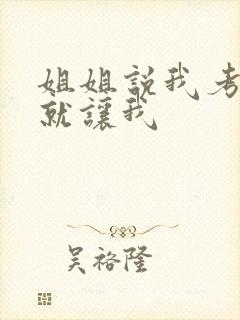 姐姐説我考
就讓我
吳裕隆